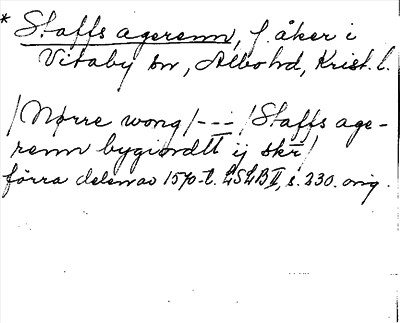 * Staffs agerenn, f. åker i
Vitaby sn, Albo hd, Krist. l.
/Nørre wong/ --- /Staffs age-
renn bygiordtt ij skr̄/
förra delen av 1570-t. LSLB II, s. 330. orig.